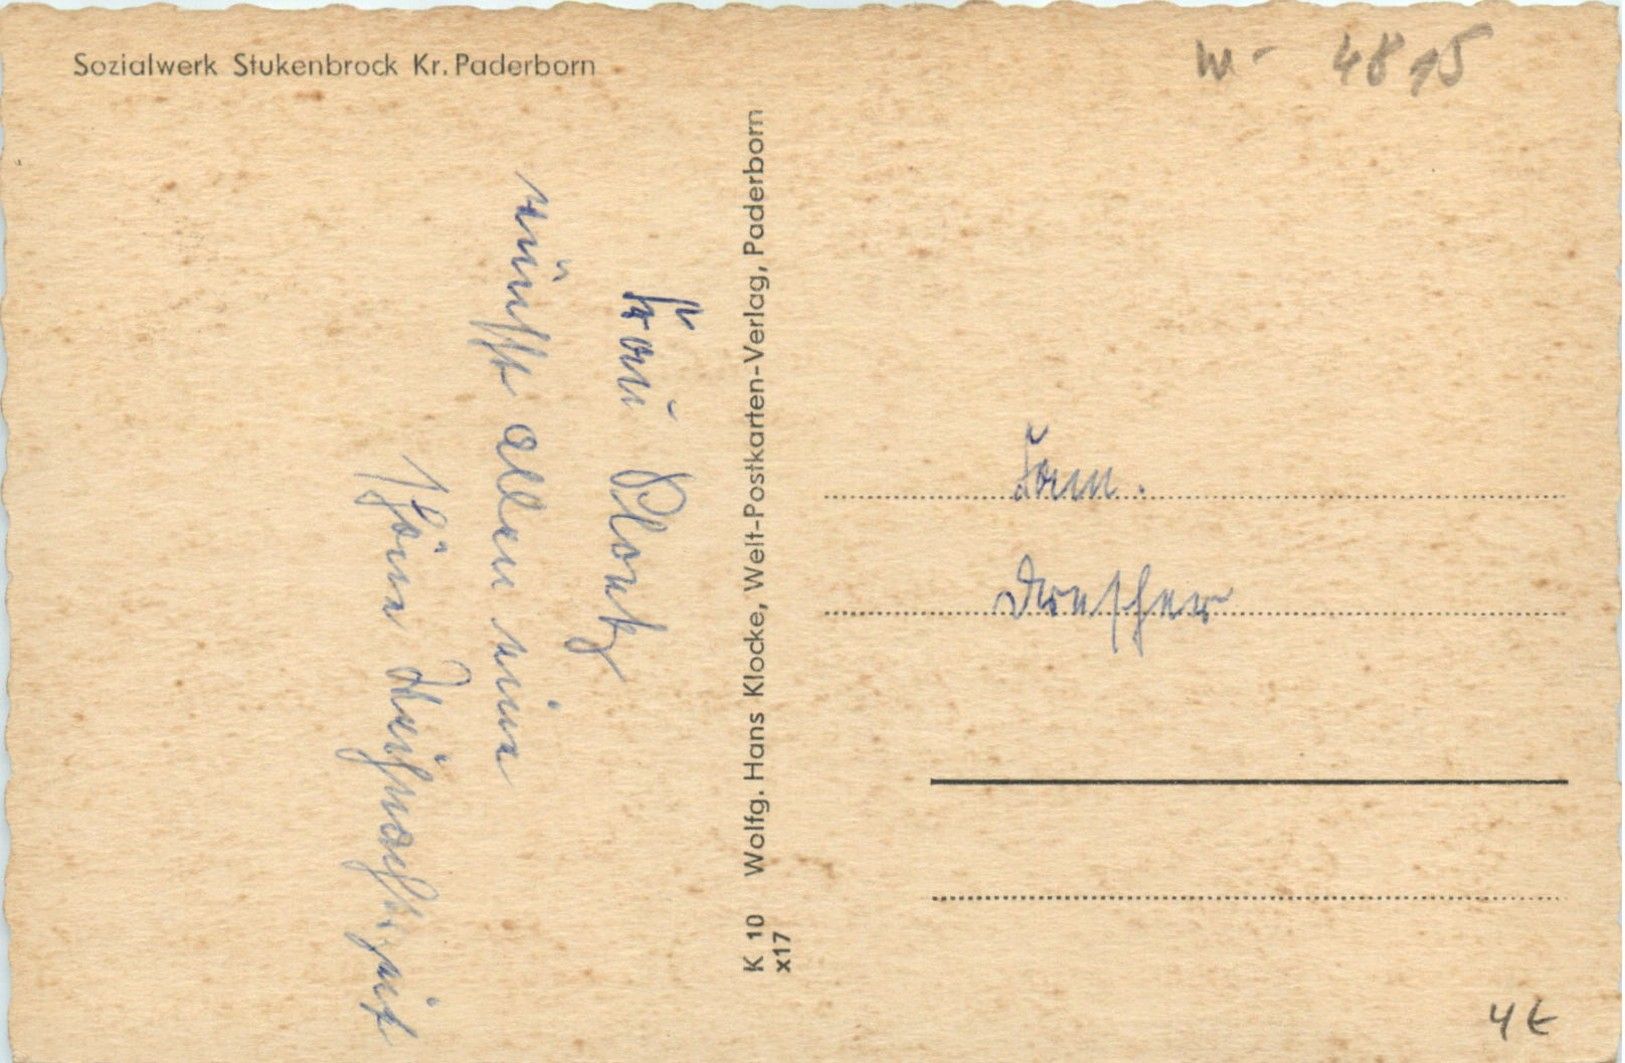 Sozialwerk Stukenbrock Kr. Paderborn
W - 4815
Frau
wünscht allen eine
schöne Weihnachtszeit
K 10 Wolfg. Hans Klocke, Welt-Postkarten-Verlag, Paderborn
x17
Fam.
4 €